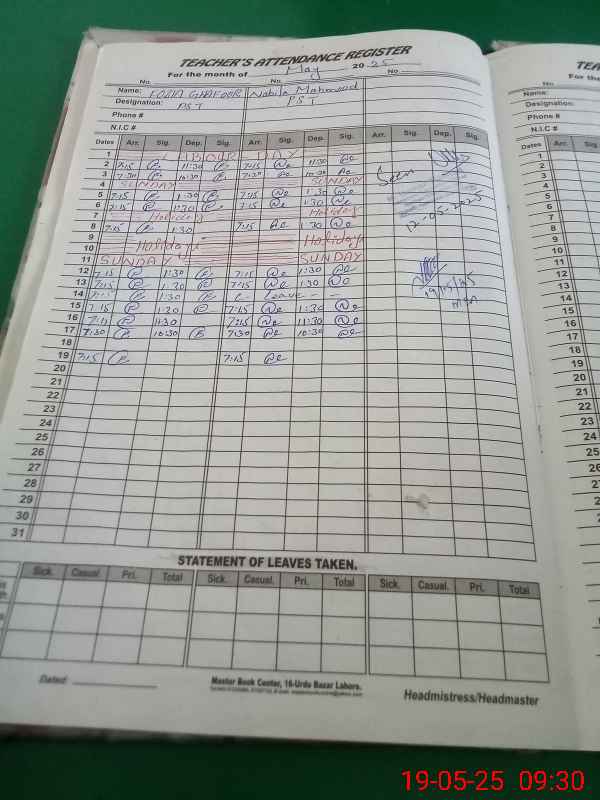 TEACHER'S ATTENDANCE REGISTER
For the month of May 2025
No. No. No.
Name: FOZIA GHAFOOR Nabila Mahmood
Designation: PST PST
Phone #
N.I.C #
Dates Arr. Sig. Dep. Sig. Arr. Sig. Dep. Sig. Arr. Sig. Dep. Sig.
1 LABOUR DAY
2 7:15 11:30 7:15 11:30
3 7:30 10:30 7:30 10:30 Seen
4 SUNDAY SUNDAY
5 7:15 1:30 7:15 1:30
6 7:15 1:30 7:15 1:30
7 Holiday Holiday
8 7:15 1:30 7:15 1:30 12-05-2025
9
10 Holidays Holidays
11 SUNDAY SUNDAY
12 7:15 1:30 7:15 1:30
13 7:15 1:30 7:15 1:30
14 7:15 1:30 Leave
15 7:15 1:30 7:15 11:30
16 7:15 7:15 11:30
17 7:30 10:30 7:30 10:30
18
19 7:15 7:15
20
21
22
23
24
25
26
27
28
29
30
31
STATEMENT OF LEAVES TAKEN.
Sick. Casual. Pri. Total Sick. Casual. Pri. Total Sick. Casual. Pri. Total
Dated:
Master Book Center, 16-Urdu Bazar Lahore.
Headmistress/Headmaster
TEA
For the
No.
Name:
Designation:
Phone #
N.I.C #
Dates Arr.
1
2
3
4
5
6
7
8
9
10
11
12
13
14
15
16
17
18
19
20
21
22
23
24
25
26
27
28
29
30
31
19-05-25 09:30